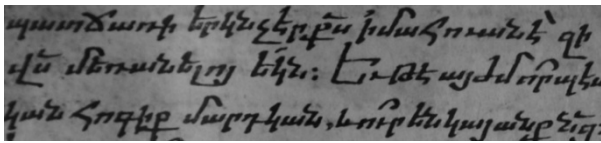 պատճառի երկնչէրքն ի մահուանէ՝ զի
վն մեռանելոյ եկն։ Եւ թէ այժմ որպէս
կան հոգիք մարդկան, և ուր են կայանք նց։